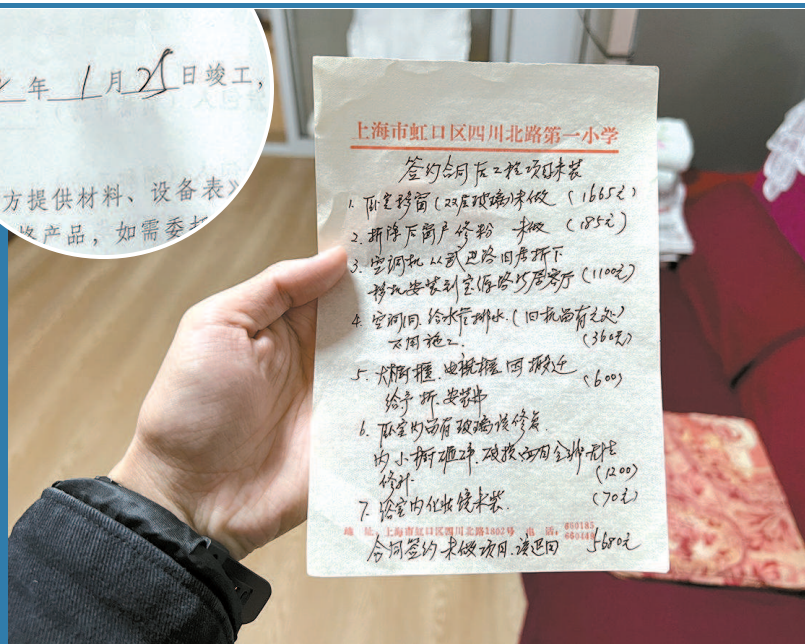 年 1月25日竣工,
方提供材料、设备表》
格产品，如需委托
上海市虹口区四川北路第一小学
签约合同后工程项目未装
1. 卧室移窗(双层玻璃)未做 (1665元)
2. 拆除后窗户修粉 未做 (185元)
3. 空调机从武进路旧房拆下
移机安装到宝源路新居客厅 (1100元)
4. 空调间 给水管排水.(旧机留有之处)
不用施工. (360元)
5. 大橱柜、电视柜 搬迁 (600)
给予拆、安装
6. 卧室内留有玻璃该修复.
内小橱砸碎、破损
修补 (1200)
7. 浴室内化妆镜未装. (70元)
地 址:上海市虹口区四川北路1802号 电 话:
合同签约未做项目.该退回 5680元